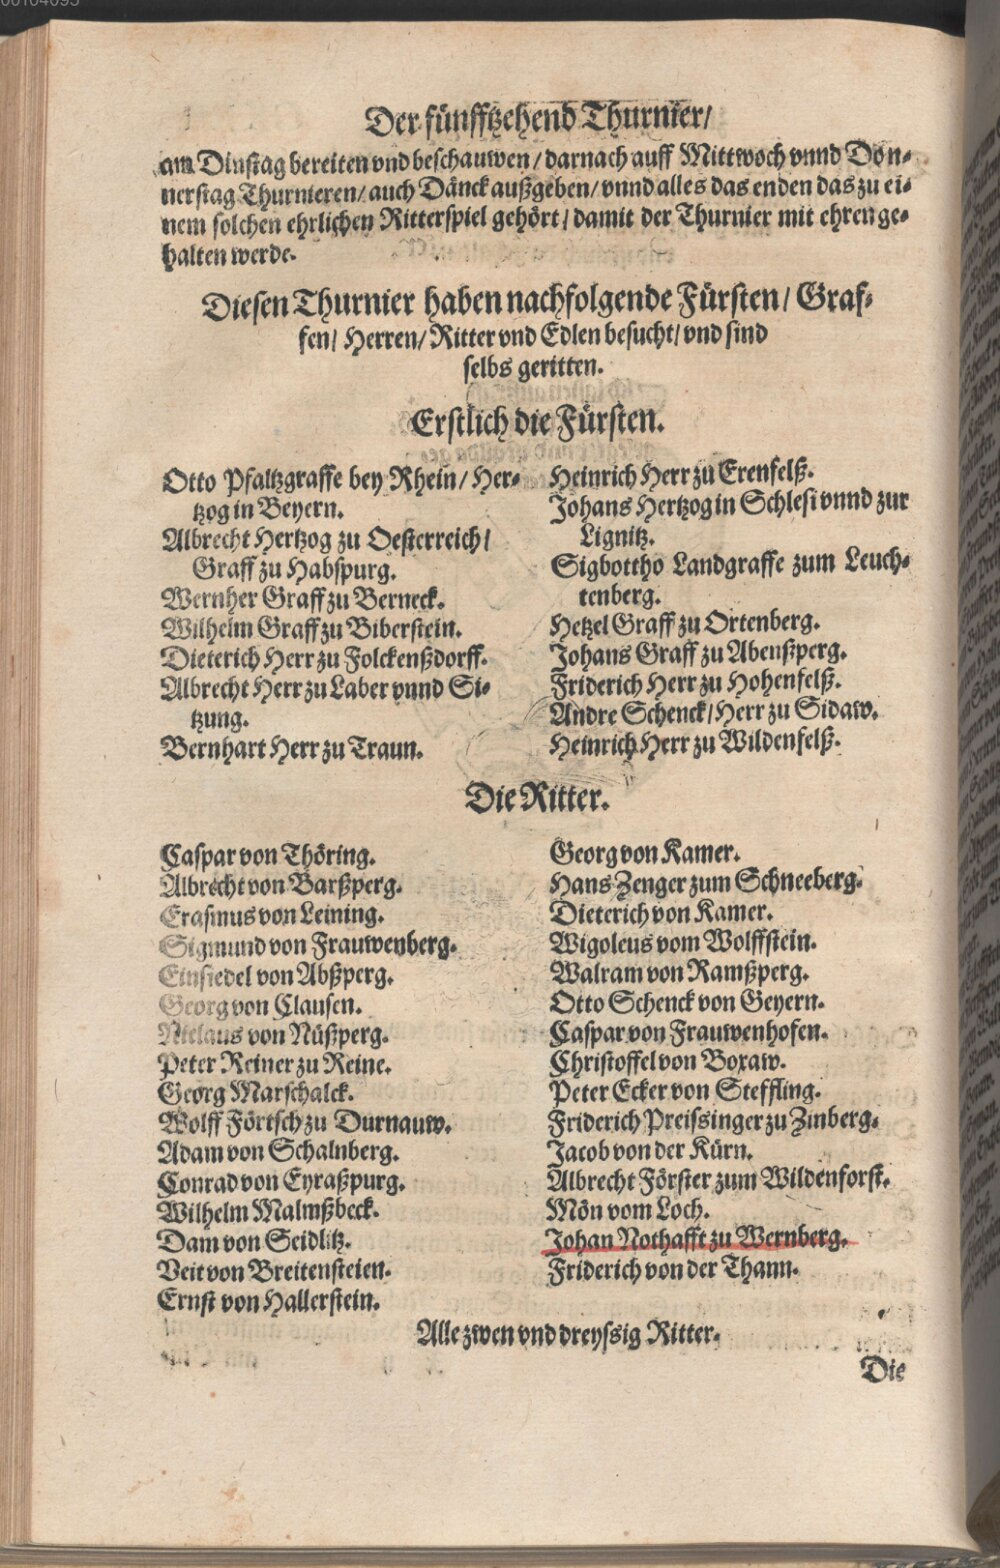 00104095
Der fünfftzehend Thurnier/
am Dinstag bereiten vnd beschauwen/ darnach auff Mittwoch vnnd Don-
nerstag Thurnieren/ auch Dänck außgeben/ vnnd alles das enden das zu ei-
nem solchen ehrlichen Ritterspiel gehört/ damit der Thurnier mit ehren ge-
halten werde.
Diesen Thurnier haben nachfolgende Fürsten/ Graf-
fen/ Herren/ Ritter vnd Edlen besucht/ vnd sind
selbs geritten.
Erstlich die Fürsten.
Otto Pfaltzgraffe bey Rhein/ Her-
tzog in Beyern.
Albrecht Hertzog zu Oesterreich/
Graff zu Habspurg.
Wernher Graff zu Berneck.
Wilhelm Graff zu Biberstein.
Dieterich Herr zu Folckenßdorff.
Albrecht Herr zu Laber vnnd Si-
tzung.
Bernhart Herr zu Traun.
Heinrich Herr zu Erenfelß.
Johans Hertzog in Schlesi vnnd zur
Lignitz.
Sigbottho Landgraffe zum Leuch-
tenberg.
Hetzel Graff zu Ortenberg.
Johans Graff zu Abenßperg.
Friderich Herr zu Hohenfelß.
Andre Schenck/ Herr zu Sidaw.
Heinrich Herr zu Wildenfelß.
Die Ritter.
Caspar von Thöring.
Albrecht von Barßperg.
Erasmus von Leining.
Sigmund von Frauwenberg.
Einsiedel von Abßperg.
Georg von Clausen.
Niclaus von Nüßperg.
Peter Reiner zu Reine.
Georg Marschalck.
Wolff Förtsch zu Durnauw.
Adam von Schalnberg.
Conrad von Eyraßpurg.
Wilhelm Malmßbeck.
Dam von Seidlitz.
Veit von Breitensteien.
Ernst von Hallerstein.
Georg von Kamer.
Hans Zenger zum Schneeberg.
Dieterich von Kamer.
Wigoleus vom Wolffstein.
Walram von Ramßperg.
Otto Schenck von Geyern.
Caspar von Frauwenhofen.
Christoffel von Boxaw.
Peter Ecker von Steffling.
Friderich Preissinger zu Zinberg.
Jacob von der Kürn.
Albrecht Förster zum Wildenforst.
Mön vom Loch.
Johan Nothafft zu Wernberg.
Friderich von der Thann.
Alle zwen vnd dreyssig Ritter.
Die